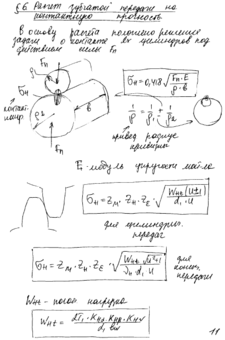 §6 Расчет зубчатой передачи на
контактную прочность
В основу расчета положено решение
задачи о контакте 2х цилиндров под
действием силы Fn
Fn
ρ1
σн = 0,418 √(Fn·E / ρ·b)
σн
b
контакт
ρ2
1/ρ = 1/ρ1 ± 1/ρ2
Fn
привед радиус
кривизны
E - модуль упругости
σн = Zм · Zн · Zε · √(Wнt (U±1) / d1 · U)
для цилиндрич.
передач
σн = Zм · Zн · Zε · √(Wнt √(U²+1) / νн d1 · U)
для
конич.
передачи
Wнt - погон нагрузка
Wнt = 2T1 · Kнα · Kнβ · Kнν / d1 bw
11